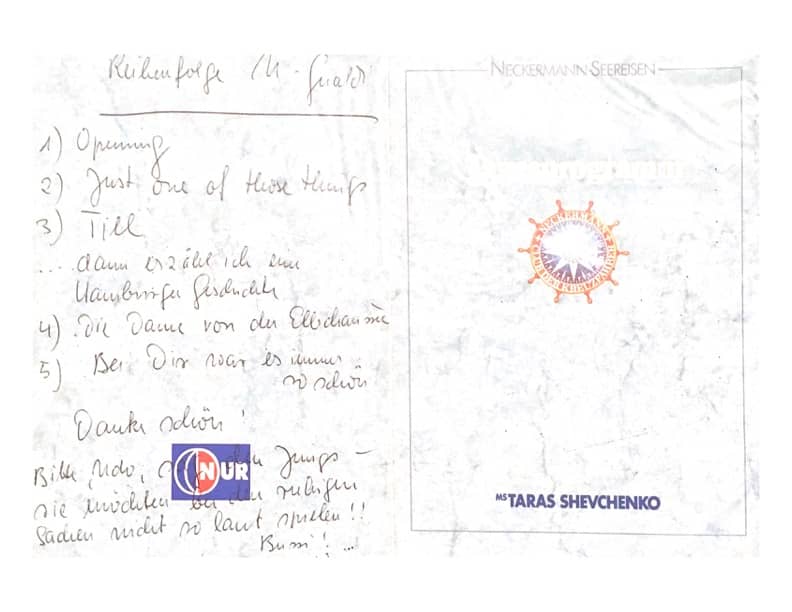 Reihenfolge M. Gualdi
1) Opening
2) Just one of those things
3) Till
.... dann erzähl ich eine
Hamburger Geschichte
4) Die Dame von der Elbchaussee
5) Bei Dir war es immer
so schön
Danke schön!
Bitte, Udo, sag den Jungs –
sie möchten bei den ruhigen
Sachen nicht so laut spielen!!
Bussi! ...
NUR
NECKERMANN SEEREISEN
NECKERMANN
CLUB DER KREUZFAHRER
MS TARAS SHEVCHENKO